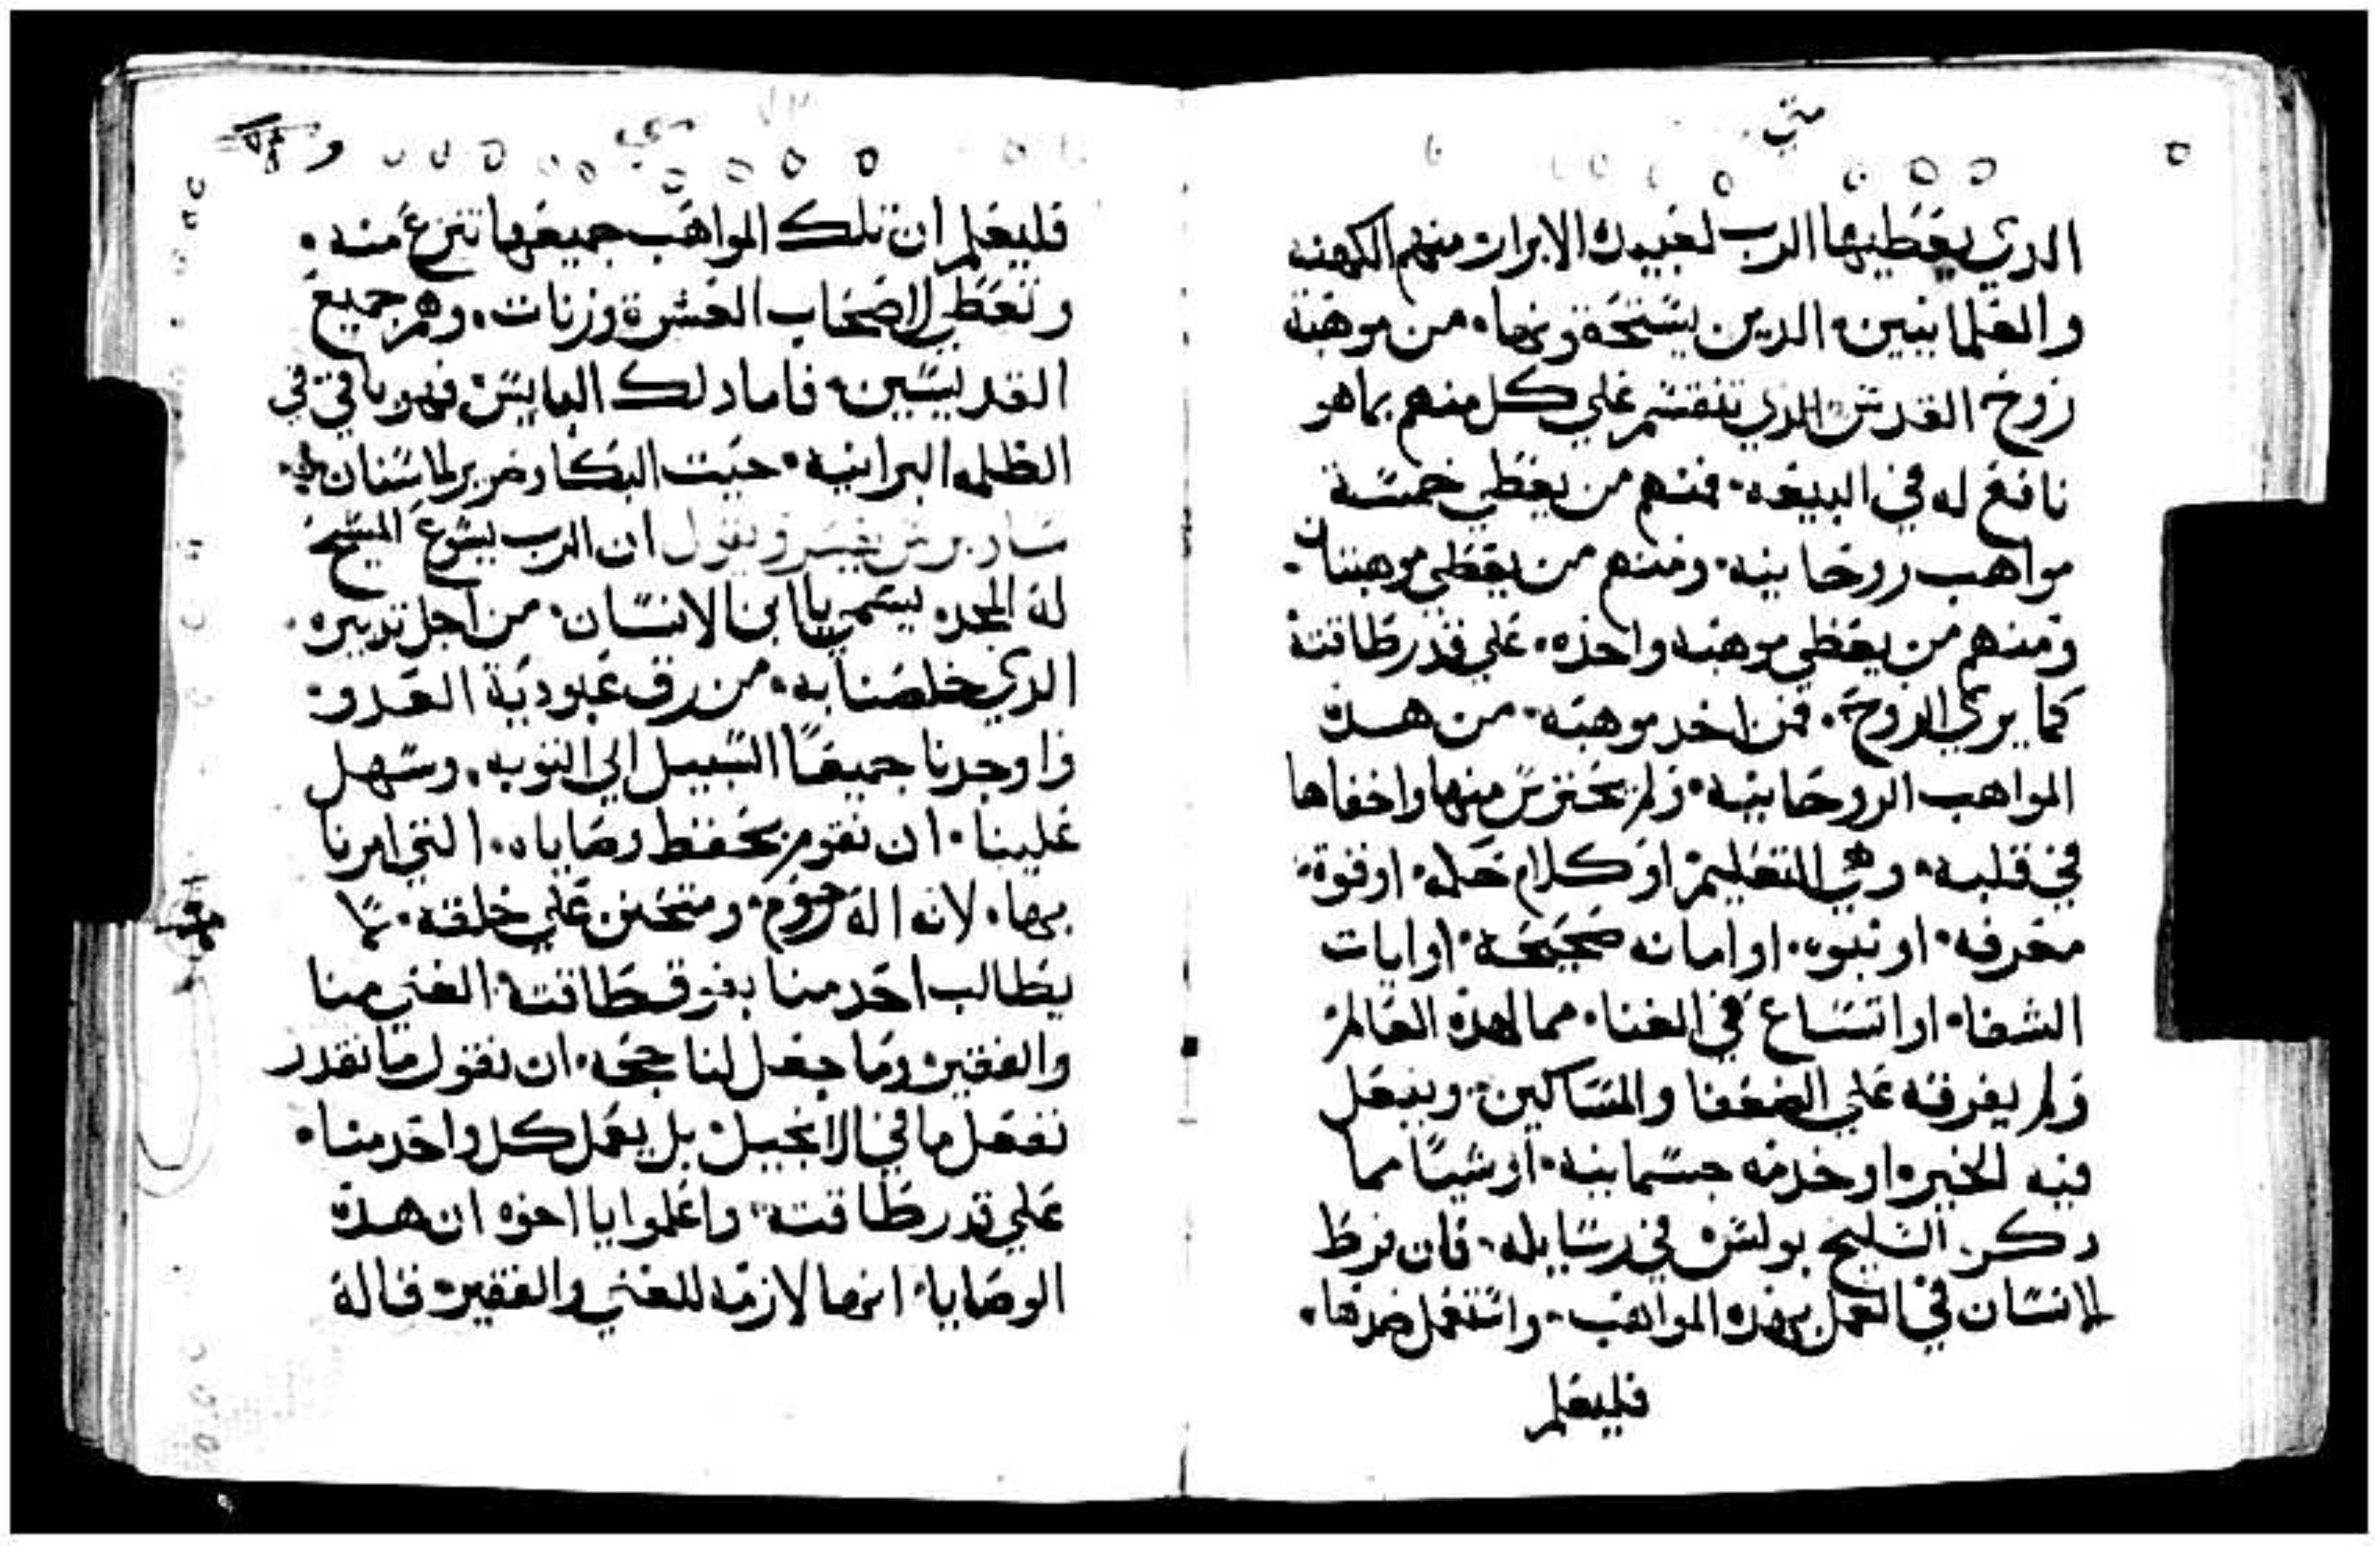 متي
الدي يعطيها الرب لعبيده الابرار منهم الكهنه
والعلمانيين الدين يستحقونها من موهبة
روح القدس الذي تنقسم علي كل منهم بما هو
نافع له في البيعه فمنهم من يعطي خمسة
مواهب روحانيه ومنهم من يعطي موهبتان
ومنهم من يعطي موهبه واحده علي قدر طاقته
كما يري الروح فمن اخد موهبه من هده
المواهب الروحانيه ولم يحترس منها واخفاها
في قلبه وهي التعليم او كلام حكمه او قوة
معرفه او نبوه او امانه صحيحة او ايات
الشفا او اتساع في الغنا مما لهده العالم
ولم يفرقه علي الضعفا والمساكين ويفعل
فيه الخير او خدمه جسمانيه او شيا مما
دكر السليح بولس في رسايله فان فرط
الانسان في العمل بهده المواهب واستعمل ضدها
فليعلم
متي
فليعلم ان تلك المواهب جميعها تنزع منه
وتعطي لاصحاب العشرة وزنات وهم جميع
القديسين فاما دلك البايس فهو باقي في
الظلمه البرانيه حيت البكا وصرير الاسنان
ساويرس يفسر ويقول ان الرب يسوع المسيح
له المجد يسمي يا ابن الانسان من اجل تدبيره
الدي خلصنا به من رق عبودية العدو
واوجدنا جميعا السبيل الي التوبه وسهل
علينا ان نقوم بحفظ وصاياه التي امرنا
بها لانه اله رحوم ومتحنن علي خلقه ما
يطالب احد منا بفوق طاقته الغني منا
والفقير وما جعل لنا حجه ان نقول ما نقدر
نفعل ما في الانجيل بل يعمل كل واحد منا
علي قدر طاقته واعلموا يا اخوه ان هده
الوصايا انها لازمه للغني والفقير قاله